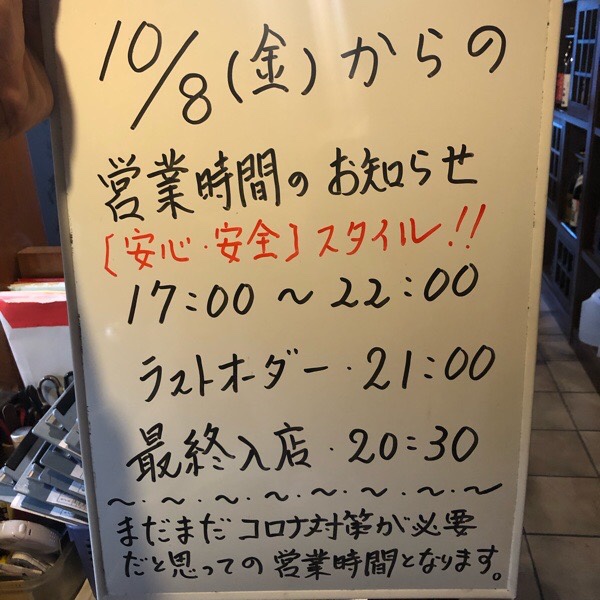 10/8(金)からの
営業時間のお知らせ
[安心・安全]スタイル!!
17:00〜22:00
ラストオーダー・21:00
最終入店・20:30
〜・〜・〜・〜・〜・〜・〜・〜
まだまだコロナ対策が必要
だと思っての営業時間となります。